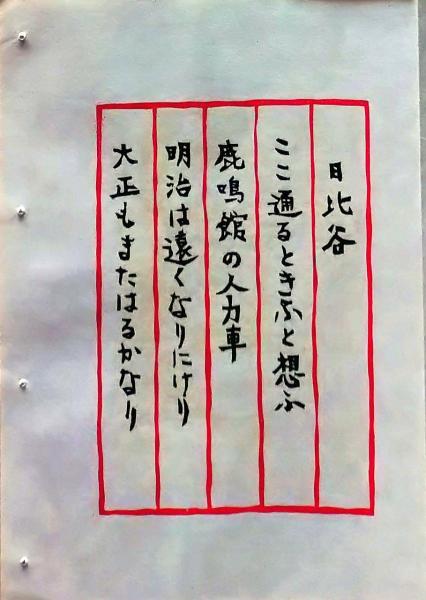 日比谷
ここ通るときふと想ふ
鹿鳴館の人力車
明治は遠くなりにけり
大正もまたはるかなり